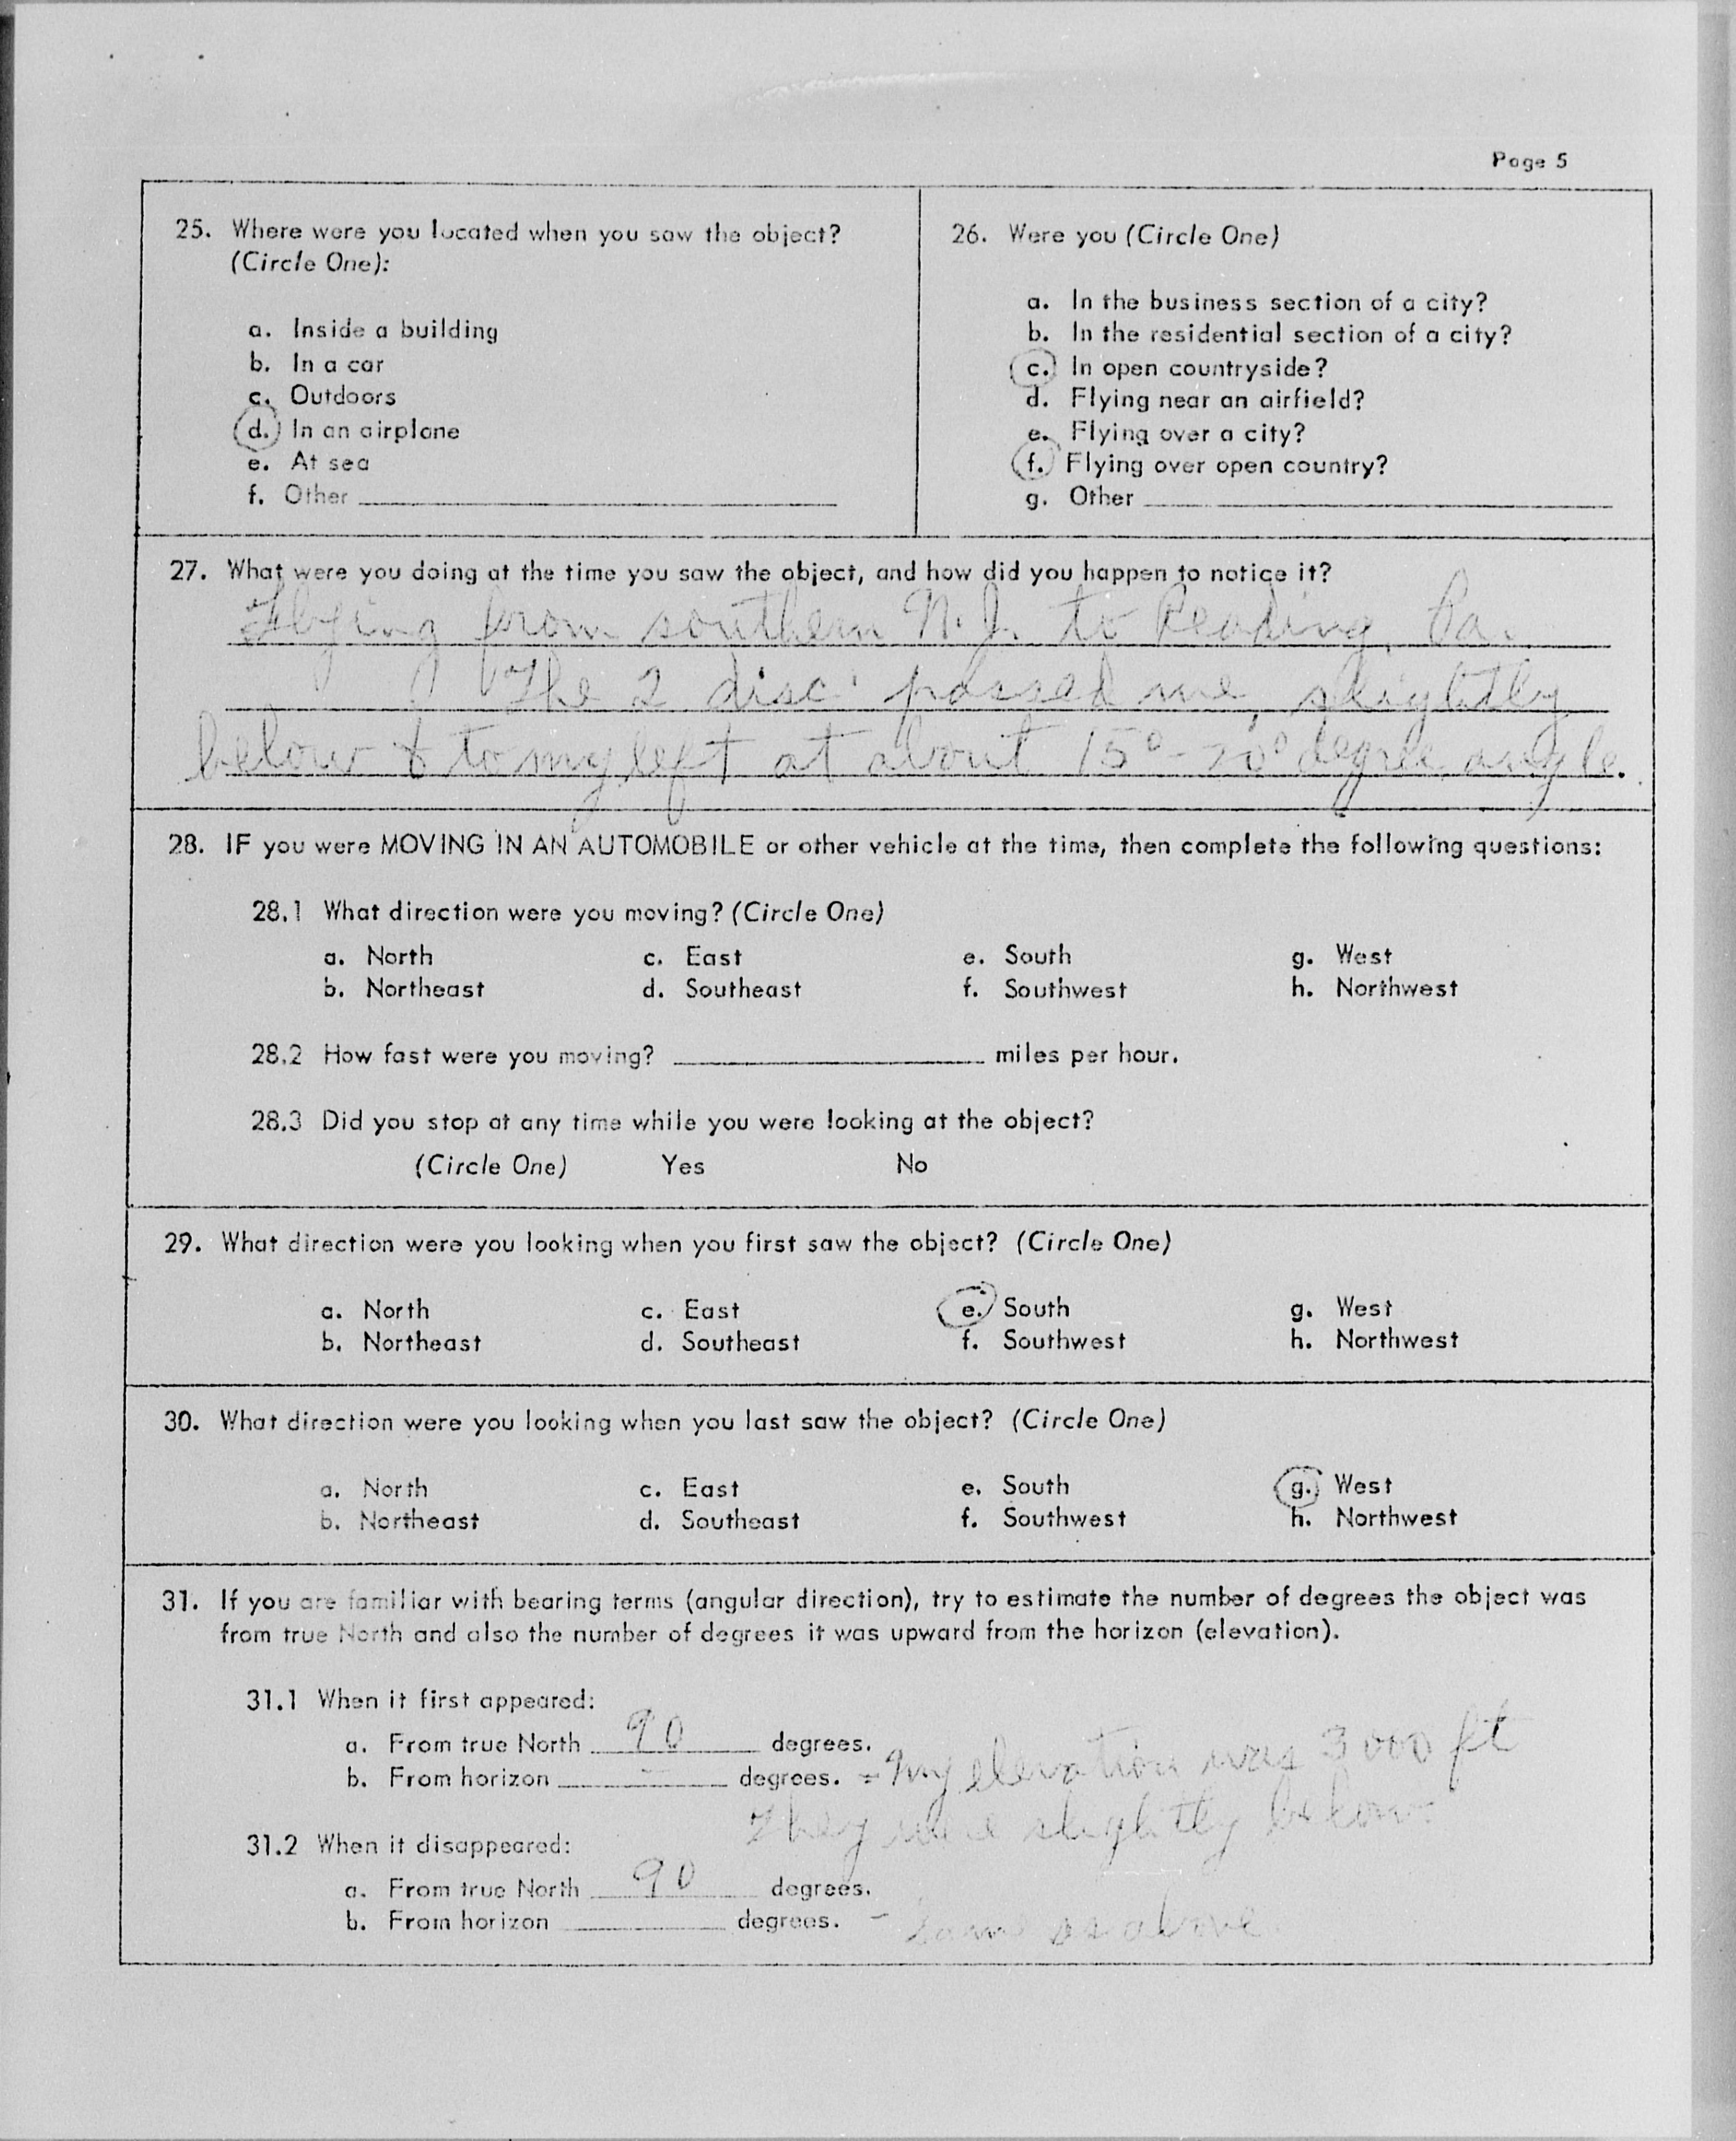 Page 5
25. Where were you located when you saw the object?
(Circle One):
a. Inside a building
b. In a car
c. Outdoors
d. In an airplane
e. At sea
f. Other
26. Were you (Circle One)
a. In the business section of a city?
b. In the residential section of a city?
c. In open countryside?
d. Flying near an airfield?
e. Flying over a city?
f. Flying over open country?
g. Other
27. What were you doing at the time you saw the object, and how did you happen to notice it?
Flying from southern N.J. to Reading, Pa.
The 2 disc passed me, slightly
below & to my left at about 15° - 20° degree angle.
28. IF you were MOVING IN AN AUTOMOBILE or other vehicle at the time, then complete the following questions:
28.1 What direction were you moving? (Circle One)
a. North c. East e. South g. West
b. Northeast d. Southeast f. Southwest h. Northwest
28.2 How fast were you moving? miles per hour.
28.3 Did you stop at any time while you were looking at the object?
(Circle One) Yes No
29. What direction were you looking when you first saw the object? (Circle One)
a. North c. East e. South g. West
b. Northeast d. Southeast f. Southwest h. Northwest
30. What direction were you looking when you last saw the object? (Circle One)
a. North c. East e. South g. West
b. Northeast d. Southeast f. Southwest h. Northwest
31. If you are familiar with bearing terms (angular direction), try to estimate the number of degrees the object was
from true North and also the number of degrees it was upward from the horizon (elevation).
31.1 When it first appeared:
a. From true North 90 degrees.
b. From horizon — degrees. = My elevation was 3000 ft
They were slightly below.
31.2 When it disappeared:
a. From true North 90 degrees.
b. From horizon degrees. - Same as above